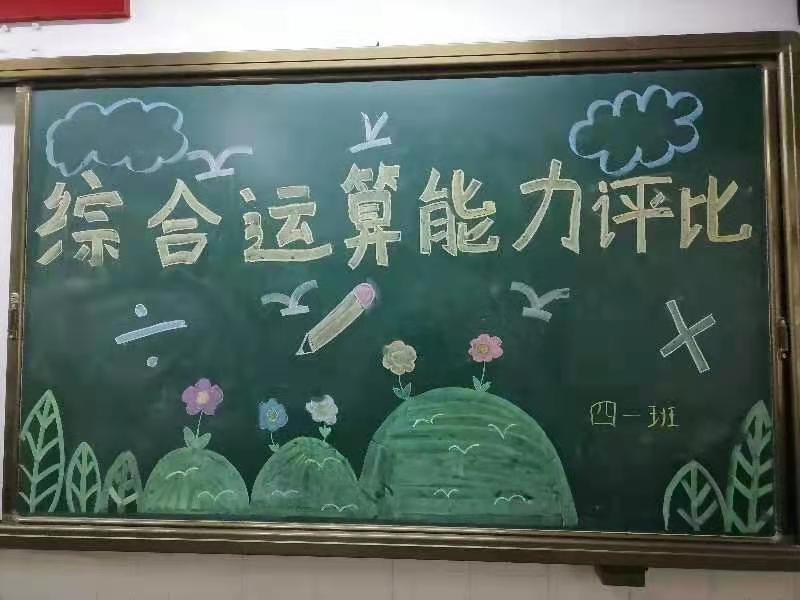 综合运算能力评比
÷
×
四一班